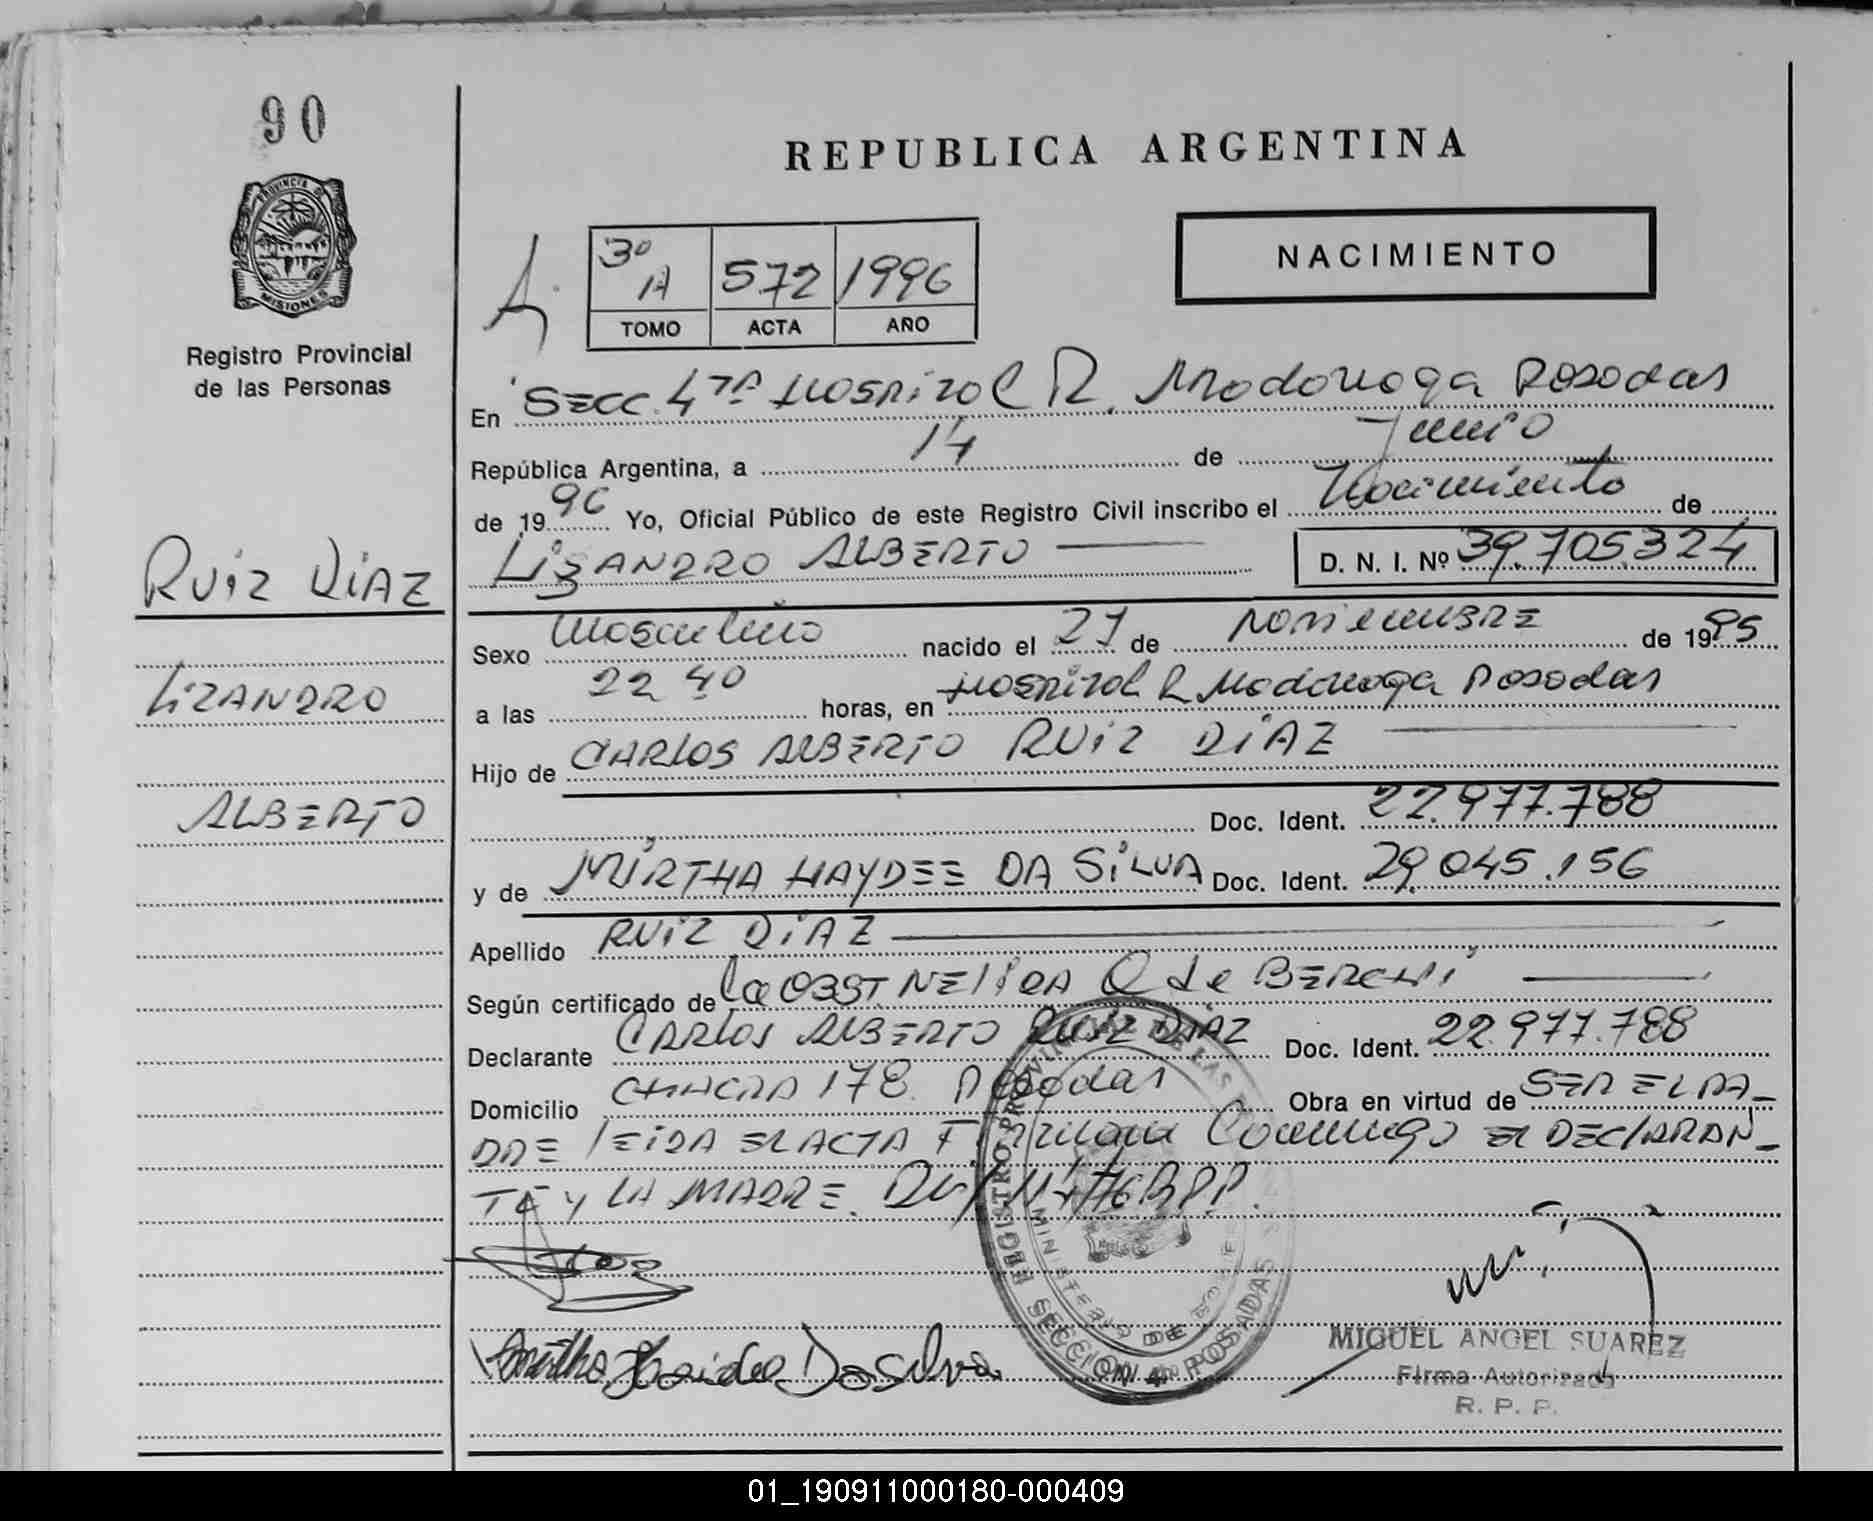 90
PROVINCIA DE
MISIONES
Registro Provincial
de las Personas
REPUBLICA ARGENTINA
NACIMIENTO
3º A 572 1996
TOMO ACTA AÑO
En SECC. 4TA HOSPITAL R. Madariaga Posadas
República Argentina, a 14 de Junio
de 1996 Yo, Oficial Público de este Registro Civil inscribo el Nacimiento de
LIZANDRO ALBERTO D. N. I. Nº 39.705.324
RUIZ DIAZ
LIZANDRO
ALBERTO
Sexo Masculino nacido el 27 de NOVIEMBRE de 1995
a las 22 40 horas, en HOSPITAL R Madariaga Posadas
Hijo de CARLOS ALBERTO RUIZ DIAZ
Doc. Ident. 22.977.788
y de MIRTHA HAYDEE DA SILVA Doc. Ident. 29.045.156
Apellido RUIZ DIAZ
Según certificado de la OBST NELIDA Q de BERCHI
Declarante CARLOS ALBERTO RUIZ DIAZ Doc. Ident. 22.977.788
Domicilio CHACRA 178. Posadas Obra en virtud de SER EL PA-
DRE LEIDA EL ACTA Firman Conmigo EL DECLARAN-
TE Y LA MADRE.
REGISTRO PROVINCIAL DE LAS
MINISTERIO DE
SECCION 4 POSADAS
Mirtha Haidee Da Silva
MIGUEL ANGEL SUAREZ
Firma Autorizada
R. P. P.
01_190911000180-000409